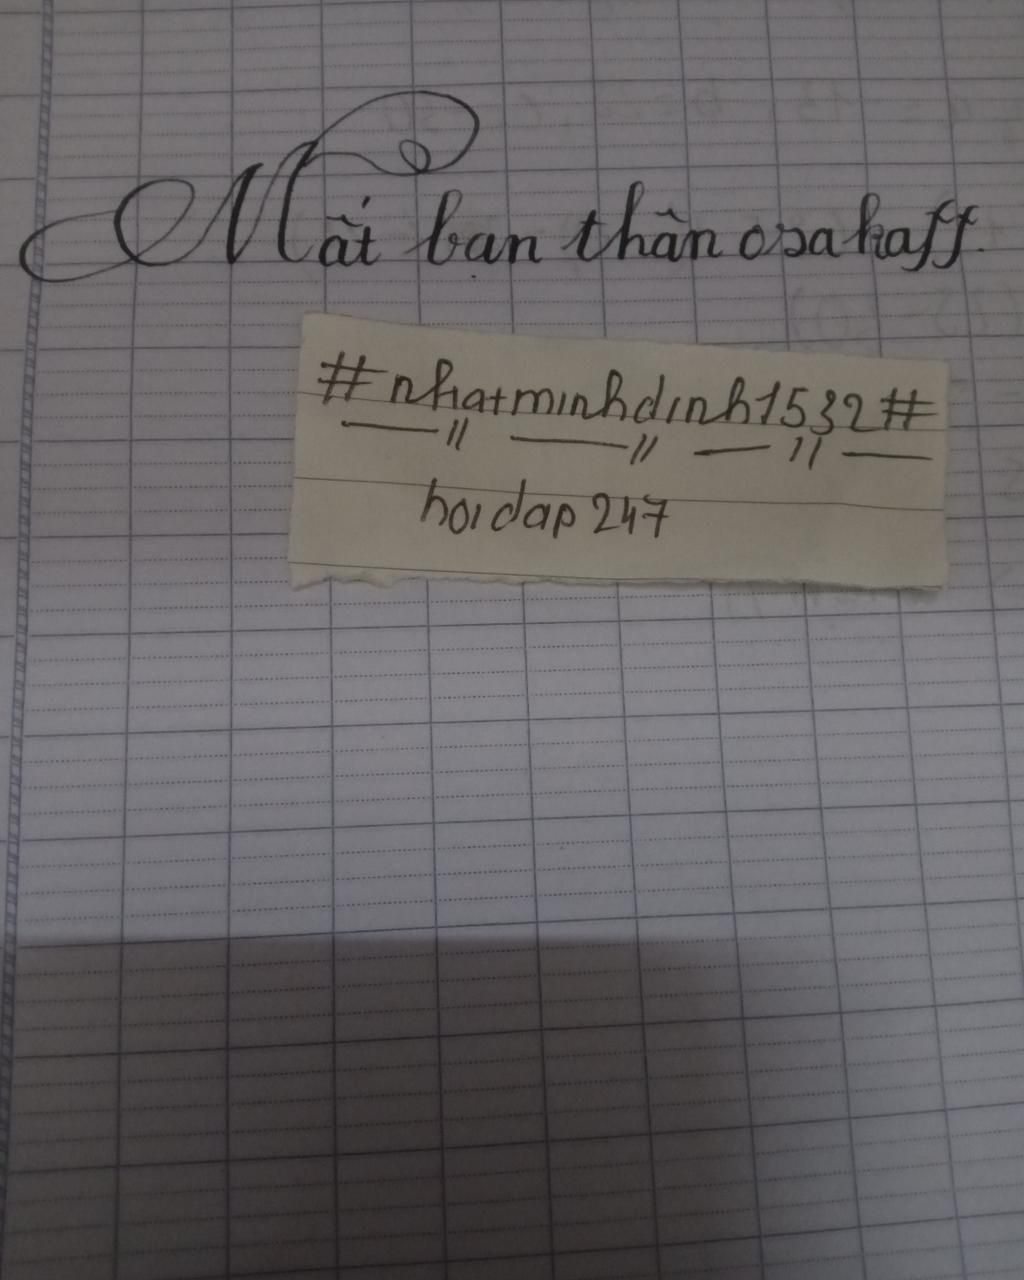 Mất bạn thân osakaff.
#nhatminhdinh1532#
hoidap 247